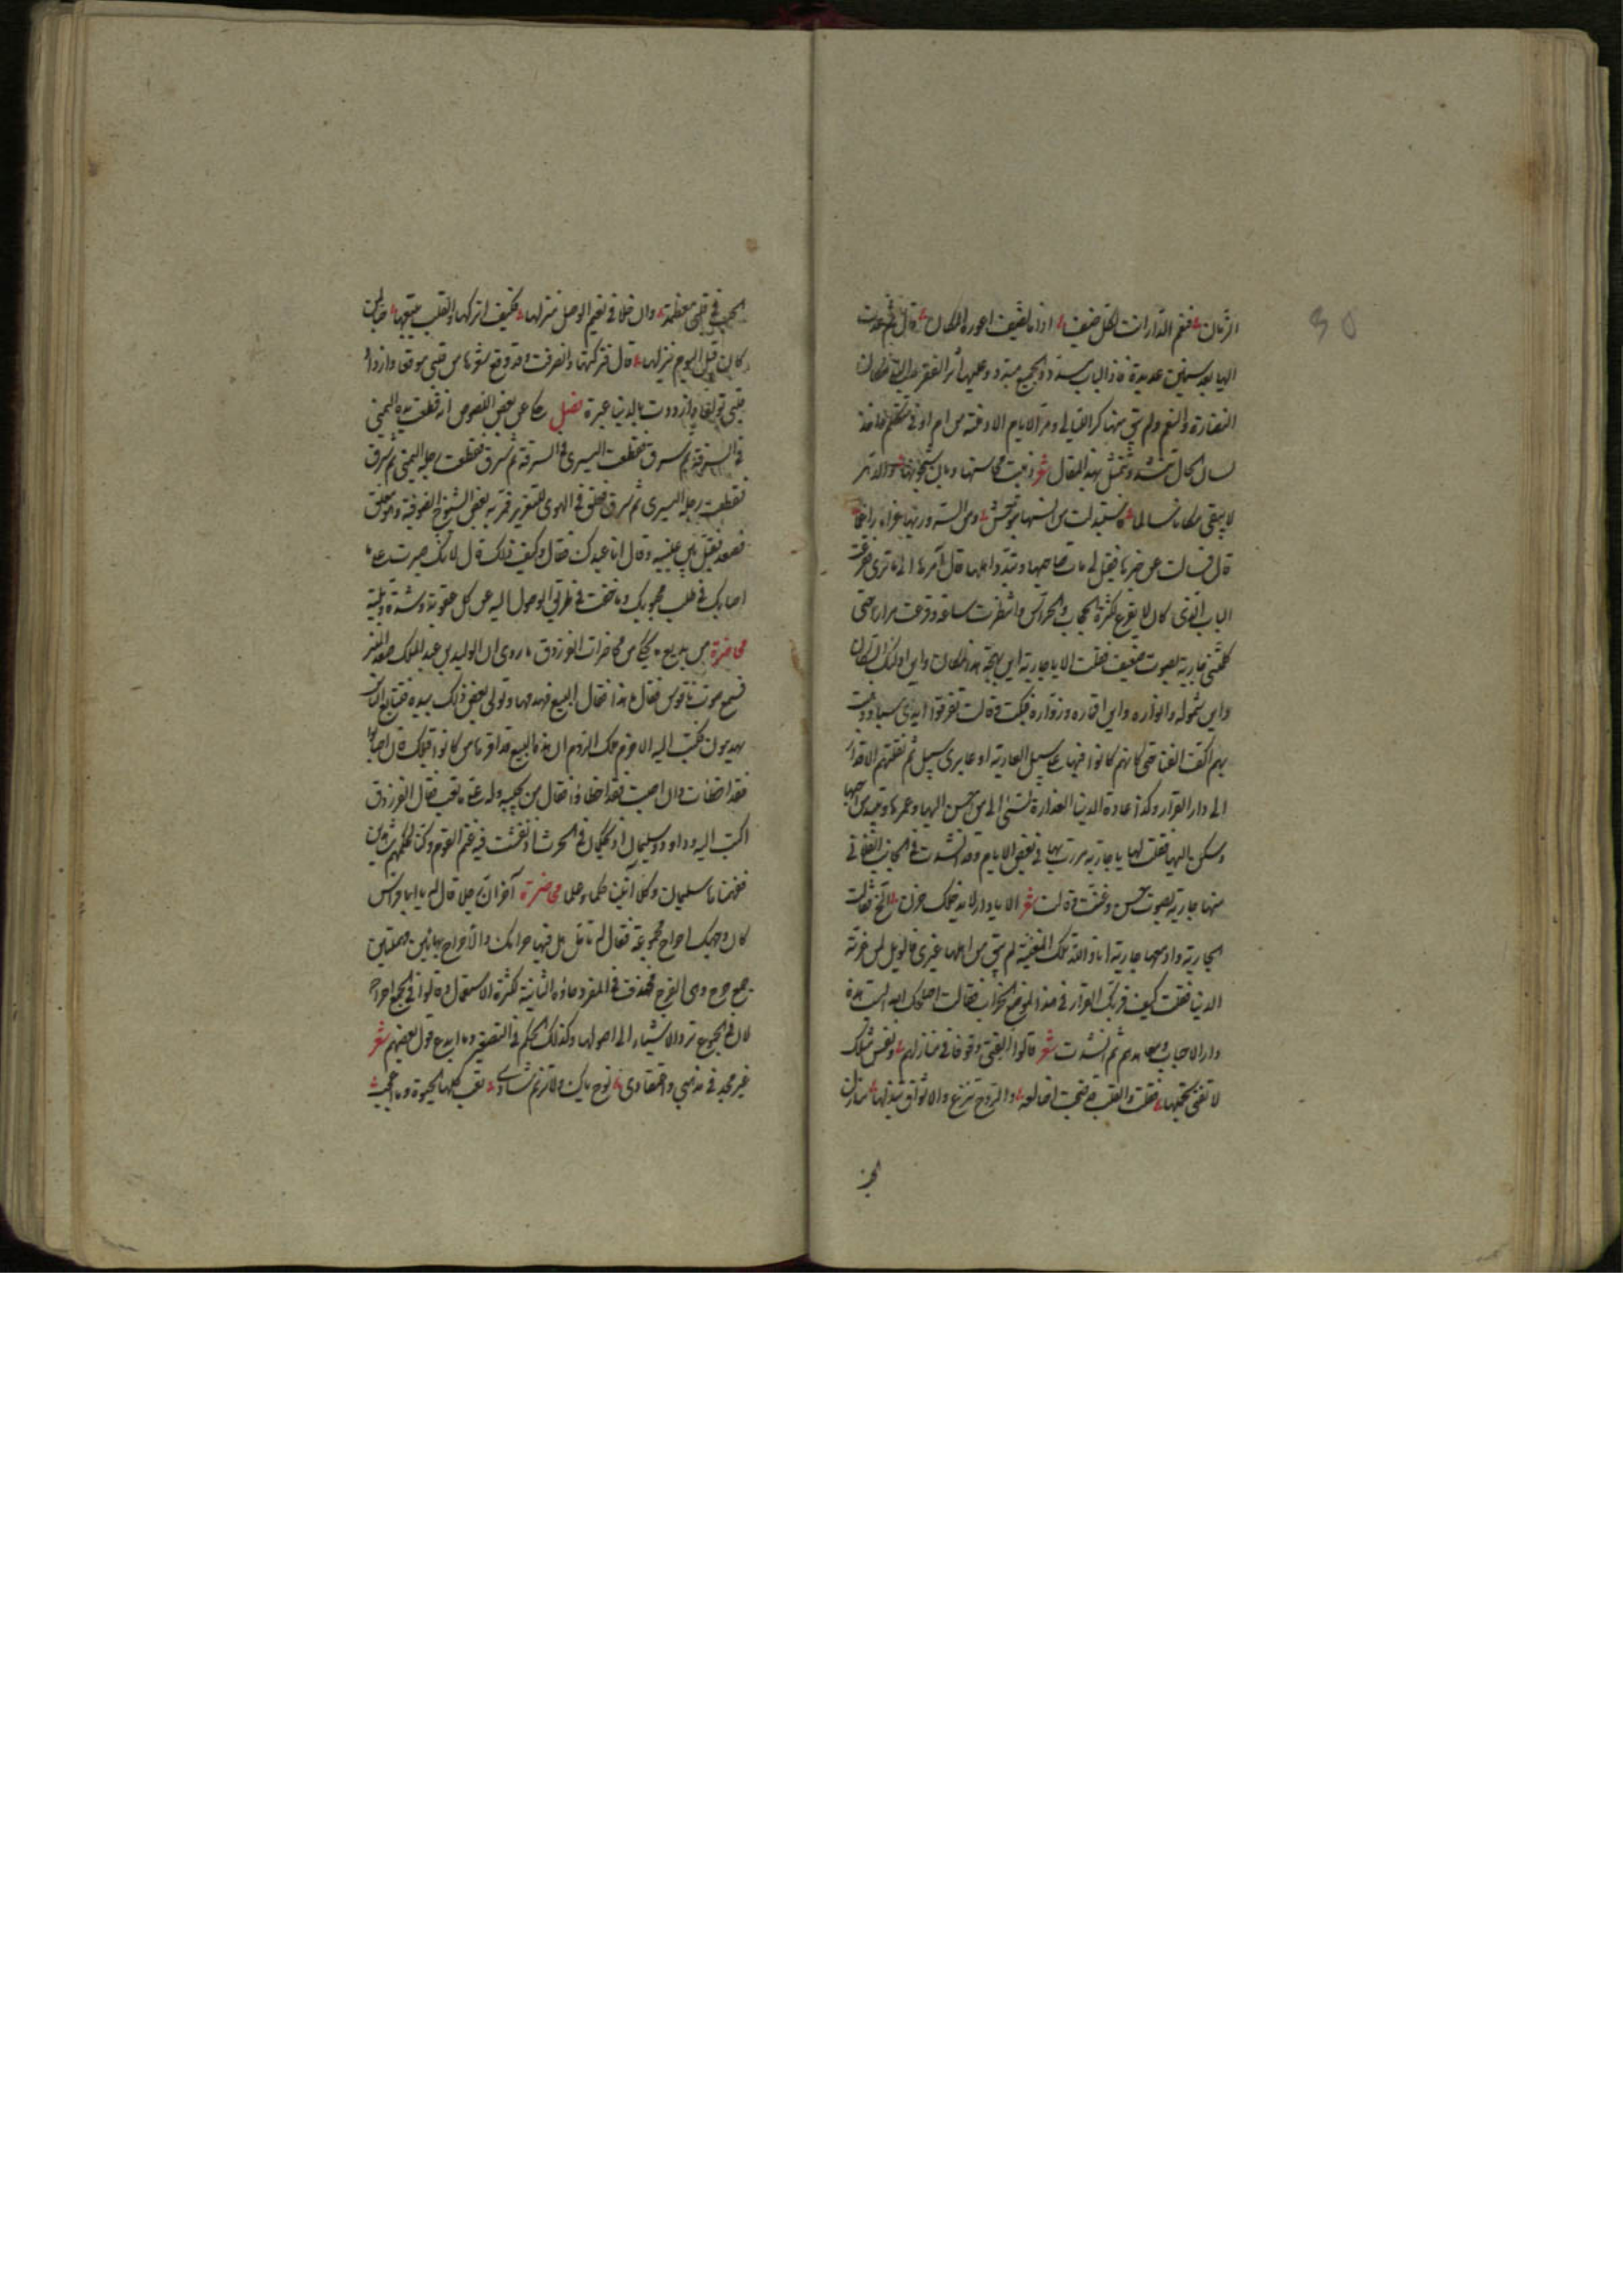 30
الزمان فنعم الدار انت لكل ضيف اذا ما الضيف اعوزه المكان قال ثم عدت
اليها بعد سنين عديدة فاذا الباب مسدود والجمع مبدد وعليها أثر الفقر بعد
النضارة والنعم ولم يبق منها كر الليالي ومر الايام الا دمنة من ام اوفى لم تكلم
لسان الحال ينشد ويتمثل بهذا المقال شعر ذهبت محاسنها وبان شجونها والدهر
لا يبقي مكانا سالما فاستبدلت من انسها بتوحش ومن السرور بها عزاء راغما
قال فسالت عن خبرها فقيل لي مات صاحبها وتبدد اهلها وآل أمرها الى ما ترى فقرعت
الباب الذي كان لا يقرع لكثرة الحجاب والحراس وانتظرت ساعة وقرعت مرارا حتى
كلمتني جارية بصوت ضعيف فقلت الا يا جارية اين بهجة هذا المكان واين اولئك السكان
واين شموله وانواره واين اقماره وزواره فبكت وقالت تفرقوا ايدي سبا وذهبت
بهم اكف الفنا حتى كانهم كانوا فيها على سبيل العارية او عابري سبيل ثم نقلتهم الاقدار
الى دار القرار وكذا عادة الدنيا الغدارة تسئ الى من احسن اليها وعمرها وتبيد من احبها
وسكن اليها فقلت لها يا جارية مررت بها في بعض الايام وقد انشدت في الجانب الفلاني
منها جارية بصوت حسن وغنت وقالت شعر الا يا دار لا يدخلك حزن الخ فقالت
الجارية وادمعها جارية انا والله تلك المغنية لم يبق من اهلها غيري فالويل لمن غرته
الدنيا فقلت كيف قر بك القرار في هذا الموضع الخراب فقالت اما كانت هذه
دار الاحباب ومعاهدهم ثم انشدت شعر قالوا اتعني وقوفا في منازلهم ونفس مثلك
لا تفنى بحملها فقلت والقلب قد ضجت اضالعه والروح تنزع والاشواق تبذلها منازل
الحب
الحب في قلبي معظمة وان خلا في نعيم الوصل منزلها فكيف اتركها والقلب يتبعها حبا لمن
كان قبل اليوم ينزلها قال فتركتها وانصرفت وقد وقع شعرها من قلبي موقعا وازداد
قلبي تولعا وازددت بالدنيا عبرة فصل حكاعن بعض اللصوص انه قطعت يده اليمنى
في السرقة ثم سرق فقطعت اليسرى في السرقة ثم سرق فقطعت رجله اليمنى ثم سرق
فقطعت رجله اليسرى ثم سرق فعلق في الهوى للتعزير فمر به بعض الشيوخ الصوفية وهو معلق
فصعد فقبل بين عينيه وقال انا عبدك فقال وكيف ذلك قال لانك صبرت على ما
اصابك في طلب محبوبك وما خفت في طريق الوصول اليه عن كل عقوبة وشدة وبلية
محاضرة من بديع ما يحكي من محاضرات الفرزدق ما روى ان الوليد بن عبد الملك صعد المنبر
فسمع صوت ناقوس فقال ما هذا فقال البيع فهدمها وتولى بعض ذلك بيده فتتابع الناس
يهدمون فكتب اليه الاخرم ملك الروم ان هذه البيع قد اقرها من كانوا قبلك فان اصابوا
فقد اخطأت وان اصبت فقد اخطأوا فقال من يجيبه وله على ما تعب فقال الفرزدق
اكتب اليه وداود وسليمان اذ يحكمان في الحرث اذ نفشت فيه غنم القوم وكنا لحكمهم شاهدين
ففهمناها سليمان وكلا آتينا حكما وعلما محاضرة آخر ان رجلا قال له يا ابا فراس
كان وجهك احراح مجموعة فقال له تامل هل فيها حر امك والاحراح بهائين مهملتين
جمع حرح وهي الفرج فحذفت في المفرد حاؤه الثانية لكثرة الاستعمال وقالوا في الجمع احراح
لان في الجموع ترد الاشياء الى اصولها وكذلك الحكم في التصغير وما ابدع قول بعضهم شعر
غير مجد في مذهبي واعتقادي نوح باك ولا ترنم شاد تعب كلها الحيوة وما اعجب